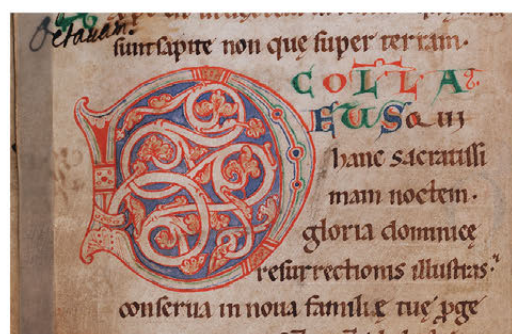 Octauam.
sunt sapite non que super terram.
COLLA
DEUS QUI
hanc sacratissi
mam noctem.
gloria dominicę
resurrectionis illustras.
conserua in noua familię tuę ꝓge